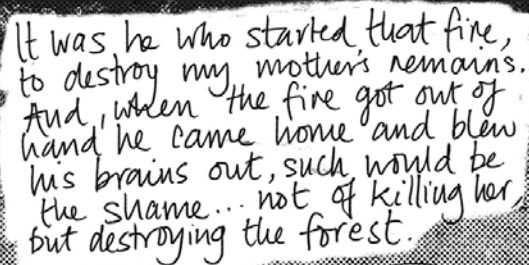 It was he who started that fire,
to destroy my mother's remains.
And, when the fire got out of
hand he came home and blew
his brains out, such would be
the shame... not of killing her,
but destroying the forest.